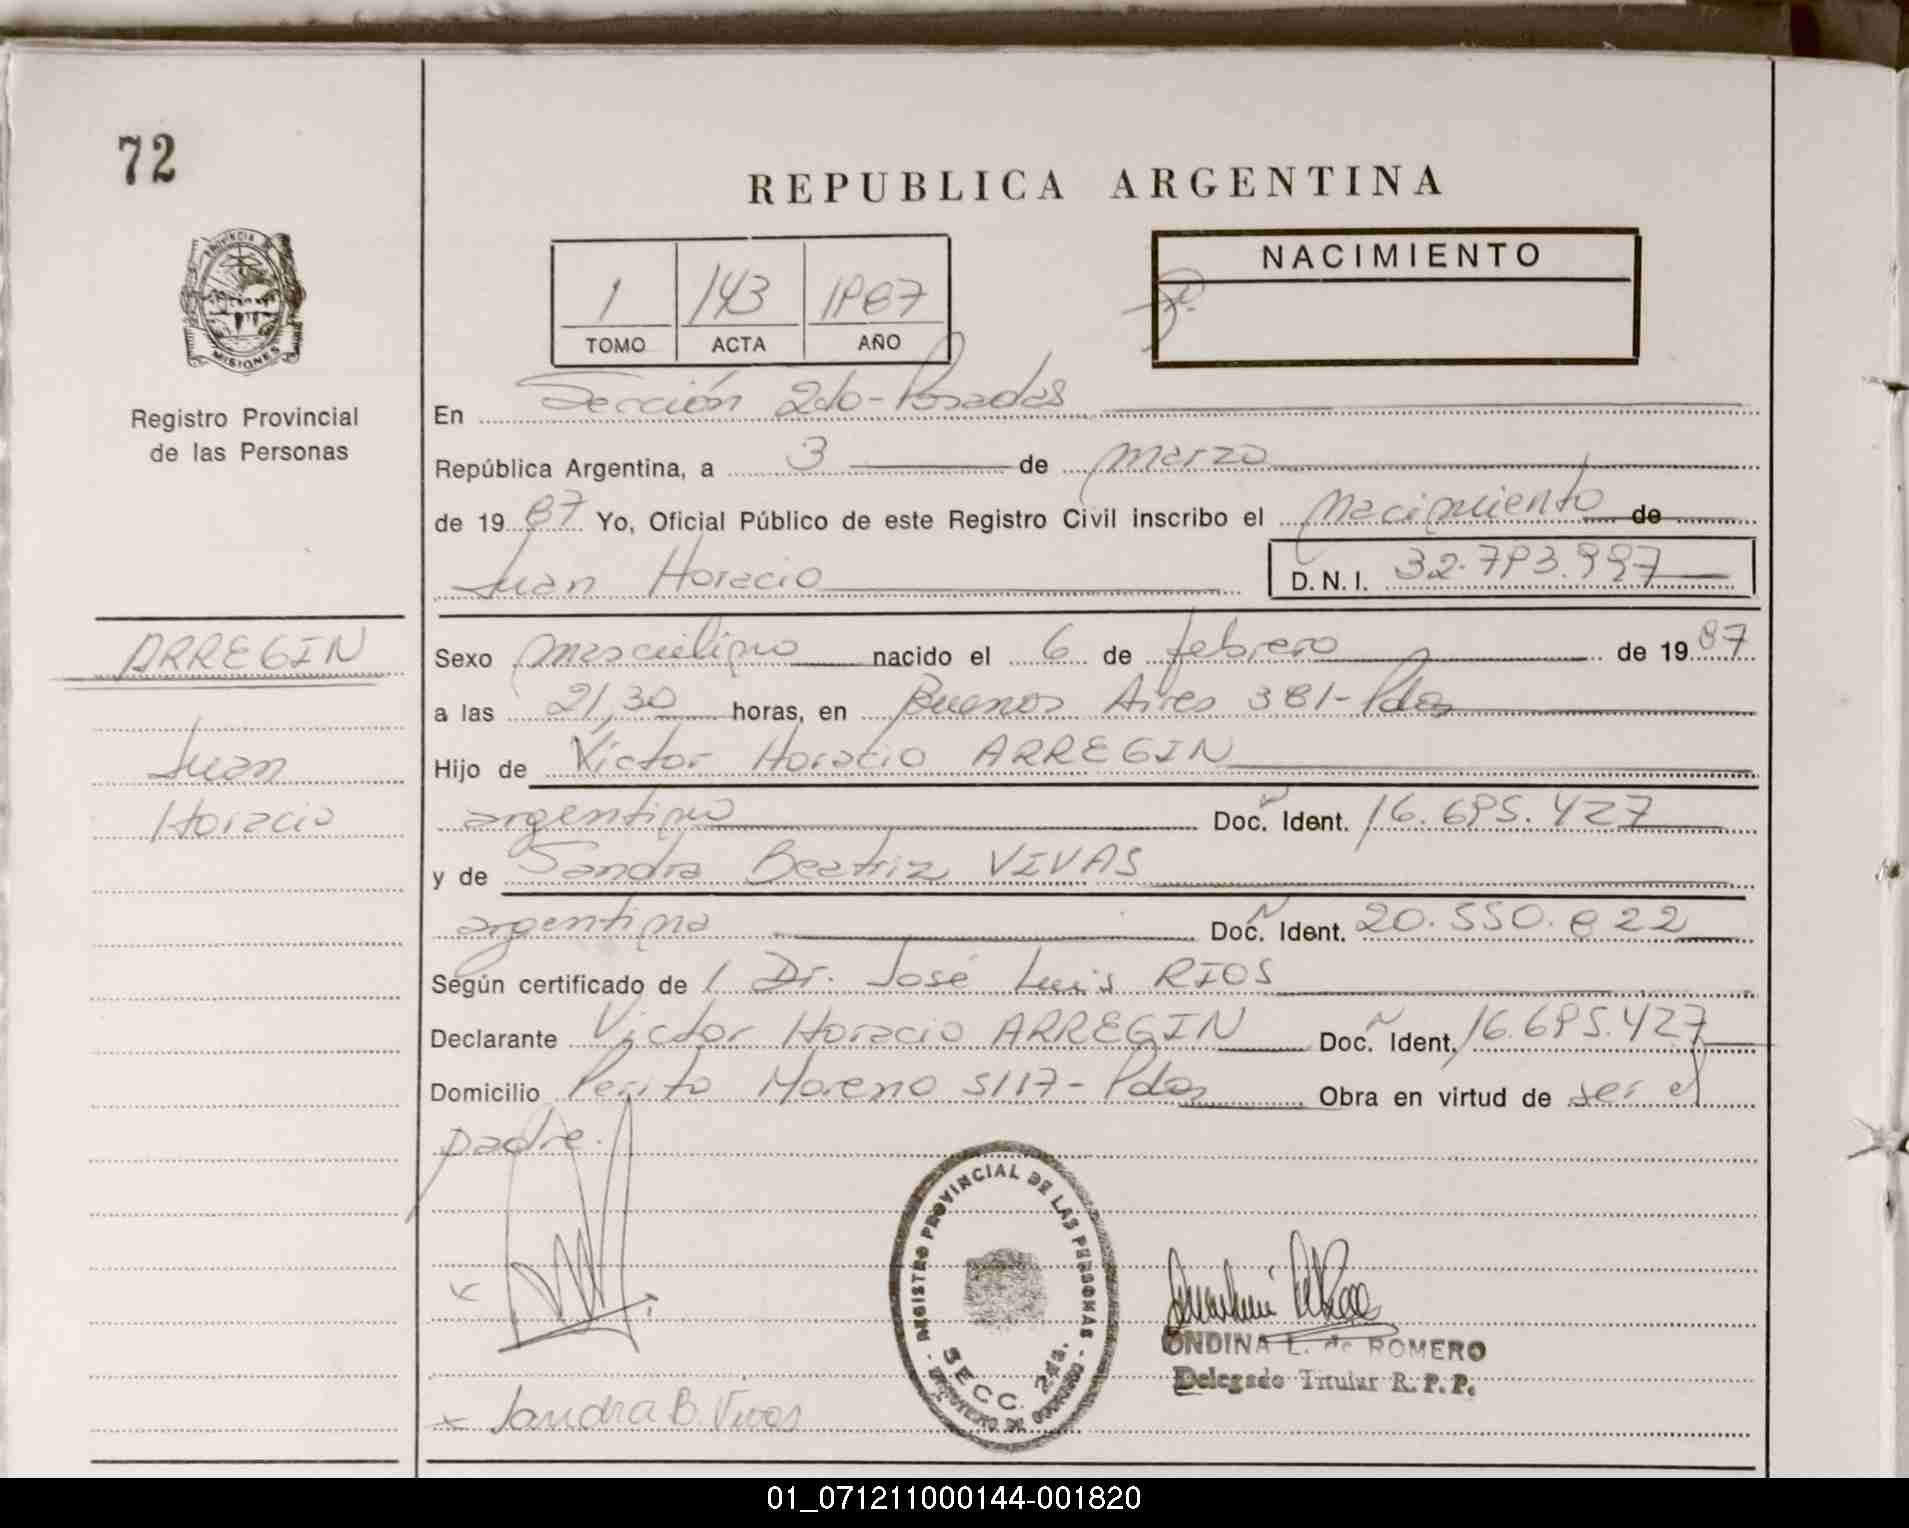 72
REPUBLICA ARGENTINA
PROVINCIA DE MISIONES
Registro Provincial
de las Personas
1 143 1987
TOMO ACTA AÑO
NACIMIENTO
En Sección 2do-Posadas
República Argentina, a 3 de marzo
de 1987 Yo, Oficial Público de este Registro Civil inscribo el nacimiento de
Juan Horacio D.N.I. 32.793.997
ARREGIN
Juan
Horacio
Sexo masculino nacido el 6 de febrero de 1987
a las 21,30 horas, en Buenos Aires 381-Pdas
Hijo de Victor Horacio ARREGIN
argentino Doc. Ident. 16.695.427
y de Sandra Beatriz VIVAS
argentina Doc. Ident. 20.550.822
Según certificado de / Dr. José Luis RIOS
Declarante Victor Horacio ARREGIN Doc. Ident. 16.695.427
Domicilio Perito Moreno 5117-Pdas Obra en virtud de ser el
padre.
REGISTRO PROVINCIAL DE LAS PERSONAS
SECC. 2da.
ONDINA L. de ROMERO
Delegado Titular R. P. P.
Sandra B. Vivas
01_071211000144-001820